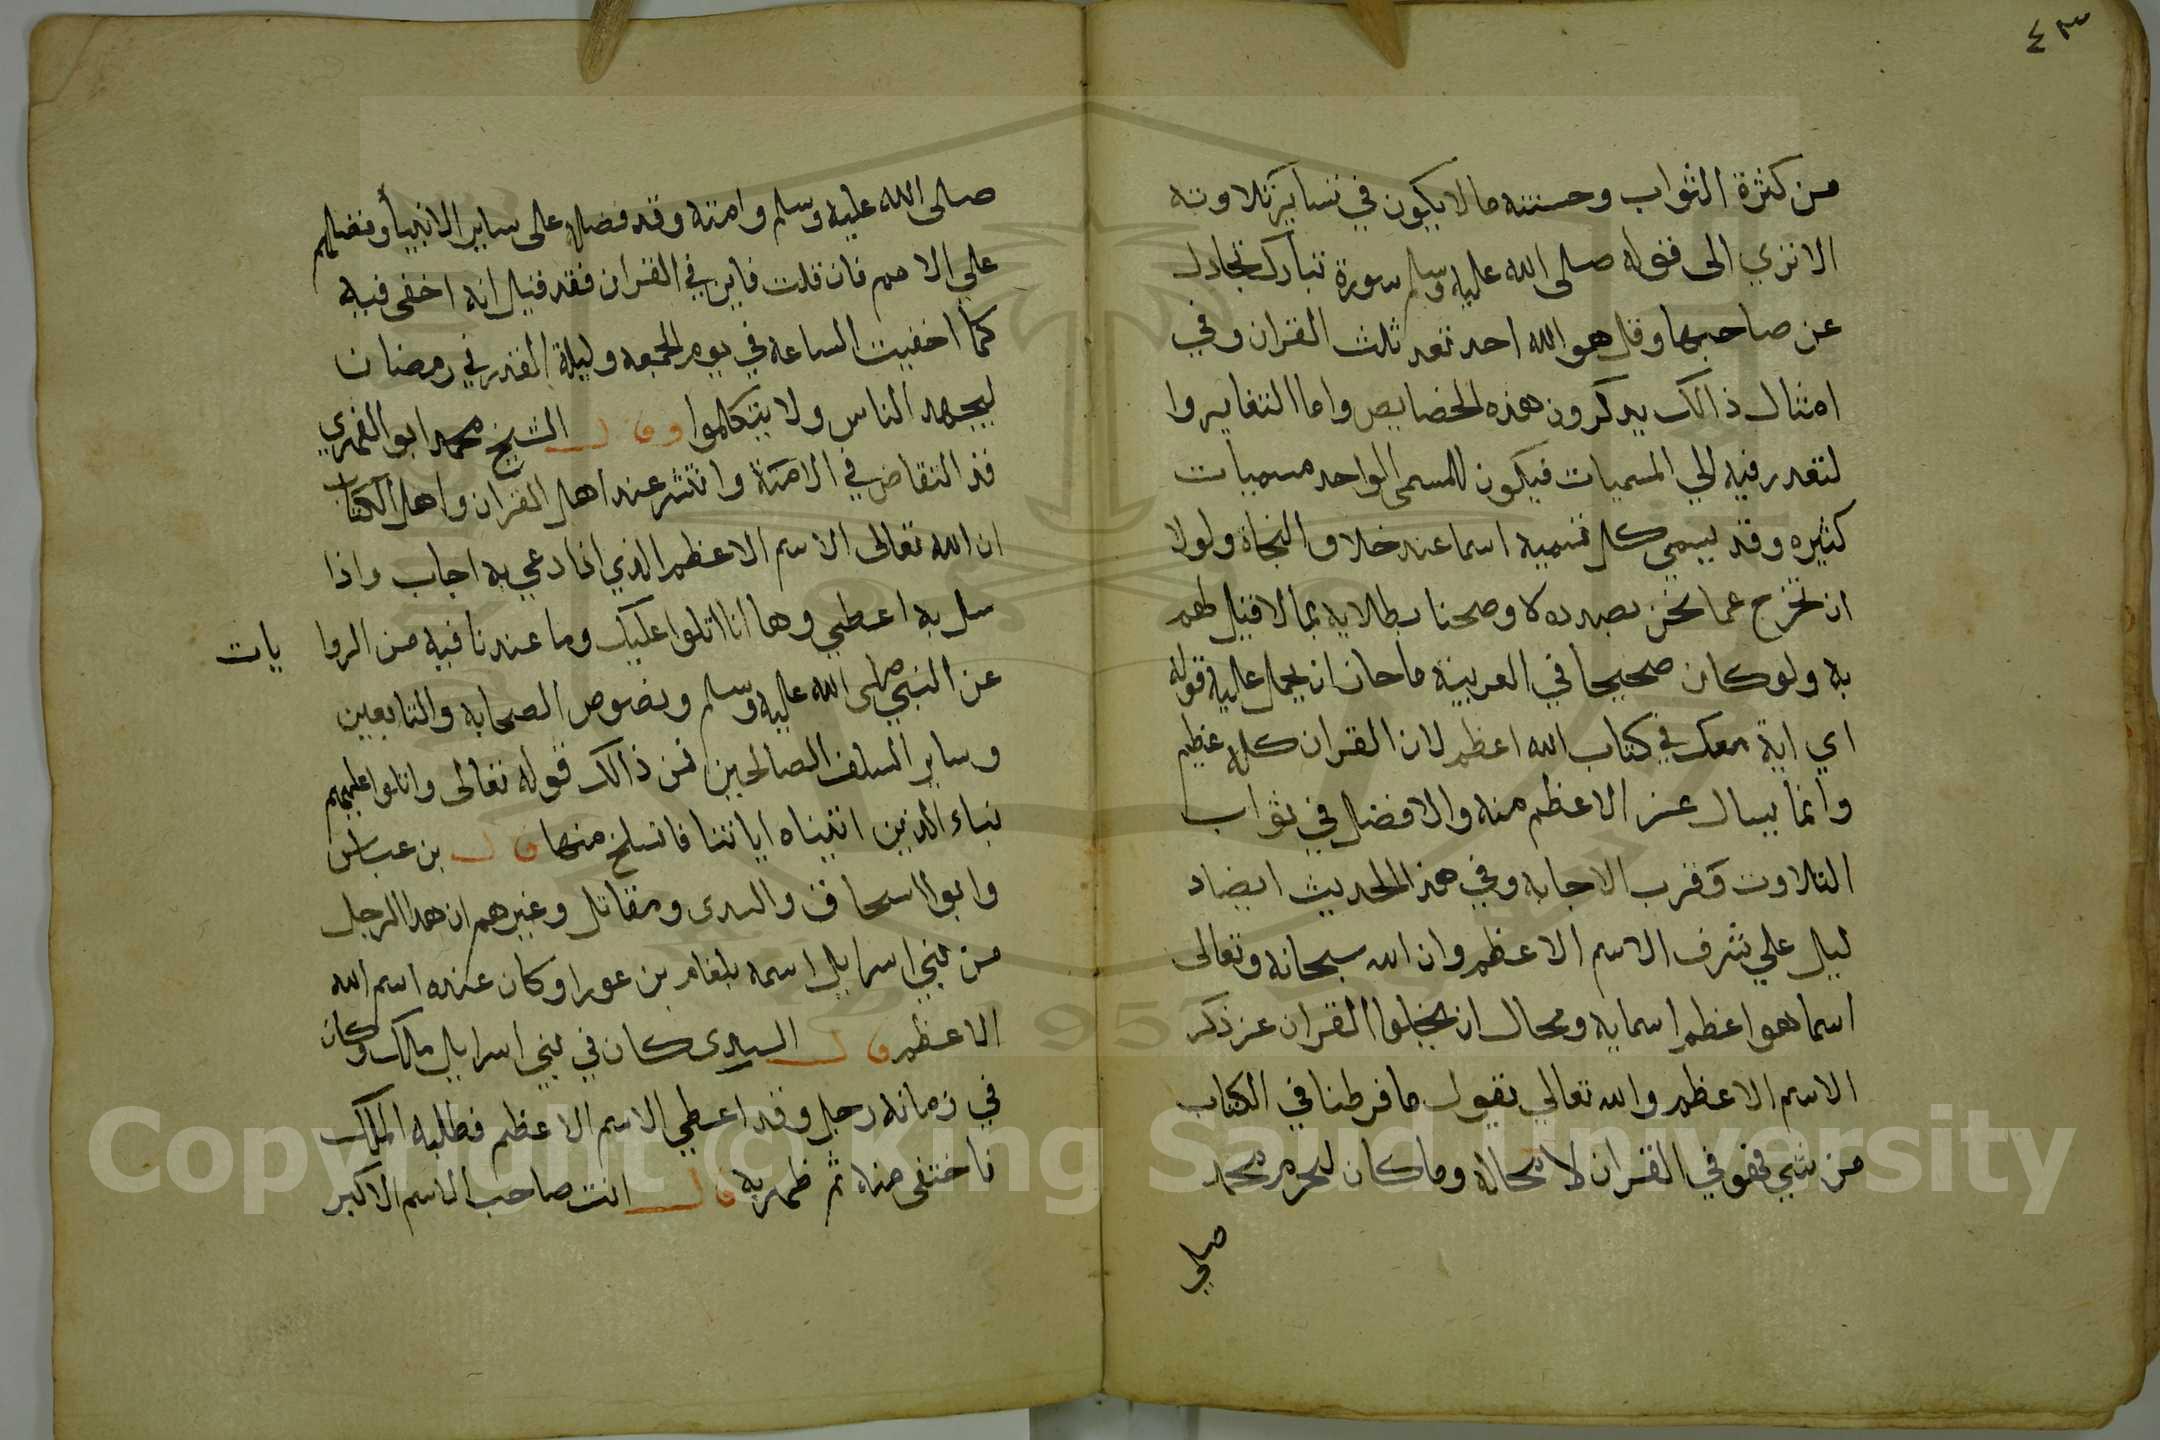 ٤٣
من كثرة الثواب وحسنته ما لا يكون في تساير تلاوته
الا تري الى قوله صلى الله عليه وسلم سورة تبارك تجادل
عن صاحبها وقل هو الله احد تعد ثلث القران وفي
امثال ذالك يدكرون هذه الخصايص واما التغايروا
لتعدر فيه الي المسميات فيكون للمسمى الواحد مسميات
كثيره وقد يسمي كل تسمية اسما عند خلاو النجاة ولولا
ان تخرج عما نحن بصدده لاوضحنا بطالايه بما لا قبل لهم
به ولو كان صحيحا في العربية ما حان ان يحمل عليه قوله
اي اية معك في كتاب الله اعظم لان القران كله عظيم
وانما يسال عن الاعظم منه والافضل في ثواب
التلاوت وقرب الاجابه وفي هذا الحديث ايضاد
ليل علي شرف الاسم الاعظم وان الله سبحانه وتعالى
اسما هو اعظم اسمايه ومحال ان يخلوا القران عن ذكر
الاسم الاعظم والله تعالي يقول ما فرطنا في الكتاب
من شي فهو في القران لا محالة وما كان ليحرم محمد
صلي
صلى الله عليه وسلم وامته وقد فضله على ساير الانبيأ وفضلهم
علي الامم فان قلت فاين في القران فقد قيل انه اخفى فيه
كما اخفيت الساعه في يوم الجمعه وليلة القدر في رمضان
ليجهد الناس ولا يتكلموا وقال الشيخ محمد ابو الفهري
قد التقاض في الامة وانتشر عند اهل القران واهل الكتاب
ان الله تعالى الاسم الاعظم الذي اذا دعي به اجاب واذا
سل به اعطي وها انا اتلوا عليك وما عندنا فيه من الروا يات
عن النبي صلى الله عليه وسلم ونصوص الصحابه والتابعين
وساير السلف الصالحين فمن ذالك قوله تعالى واتلوا عليهم
نباء الذين اتيناه اياتنا فانسلخ منها قال بن عباس
وابوا اسحاق والسدى ومقاتل وغيرهم ان هدا الرجل
من بني اسرايل اسمه بلعام بن عورا وكان عنده اسم الله
الاعظم قال السدى كان في بني اسرايل مالك وكان
في زمانه رجل وقد اعطي الاسم الاعظم فطلبه الملك
فاختفى منه ثم ظهر به قال انت صاحب الاسم الاكبر
Copyright © King Saud University